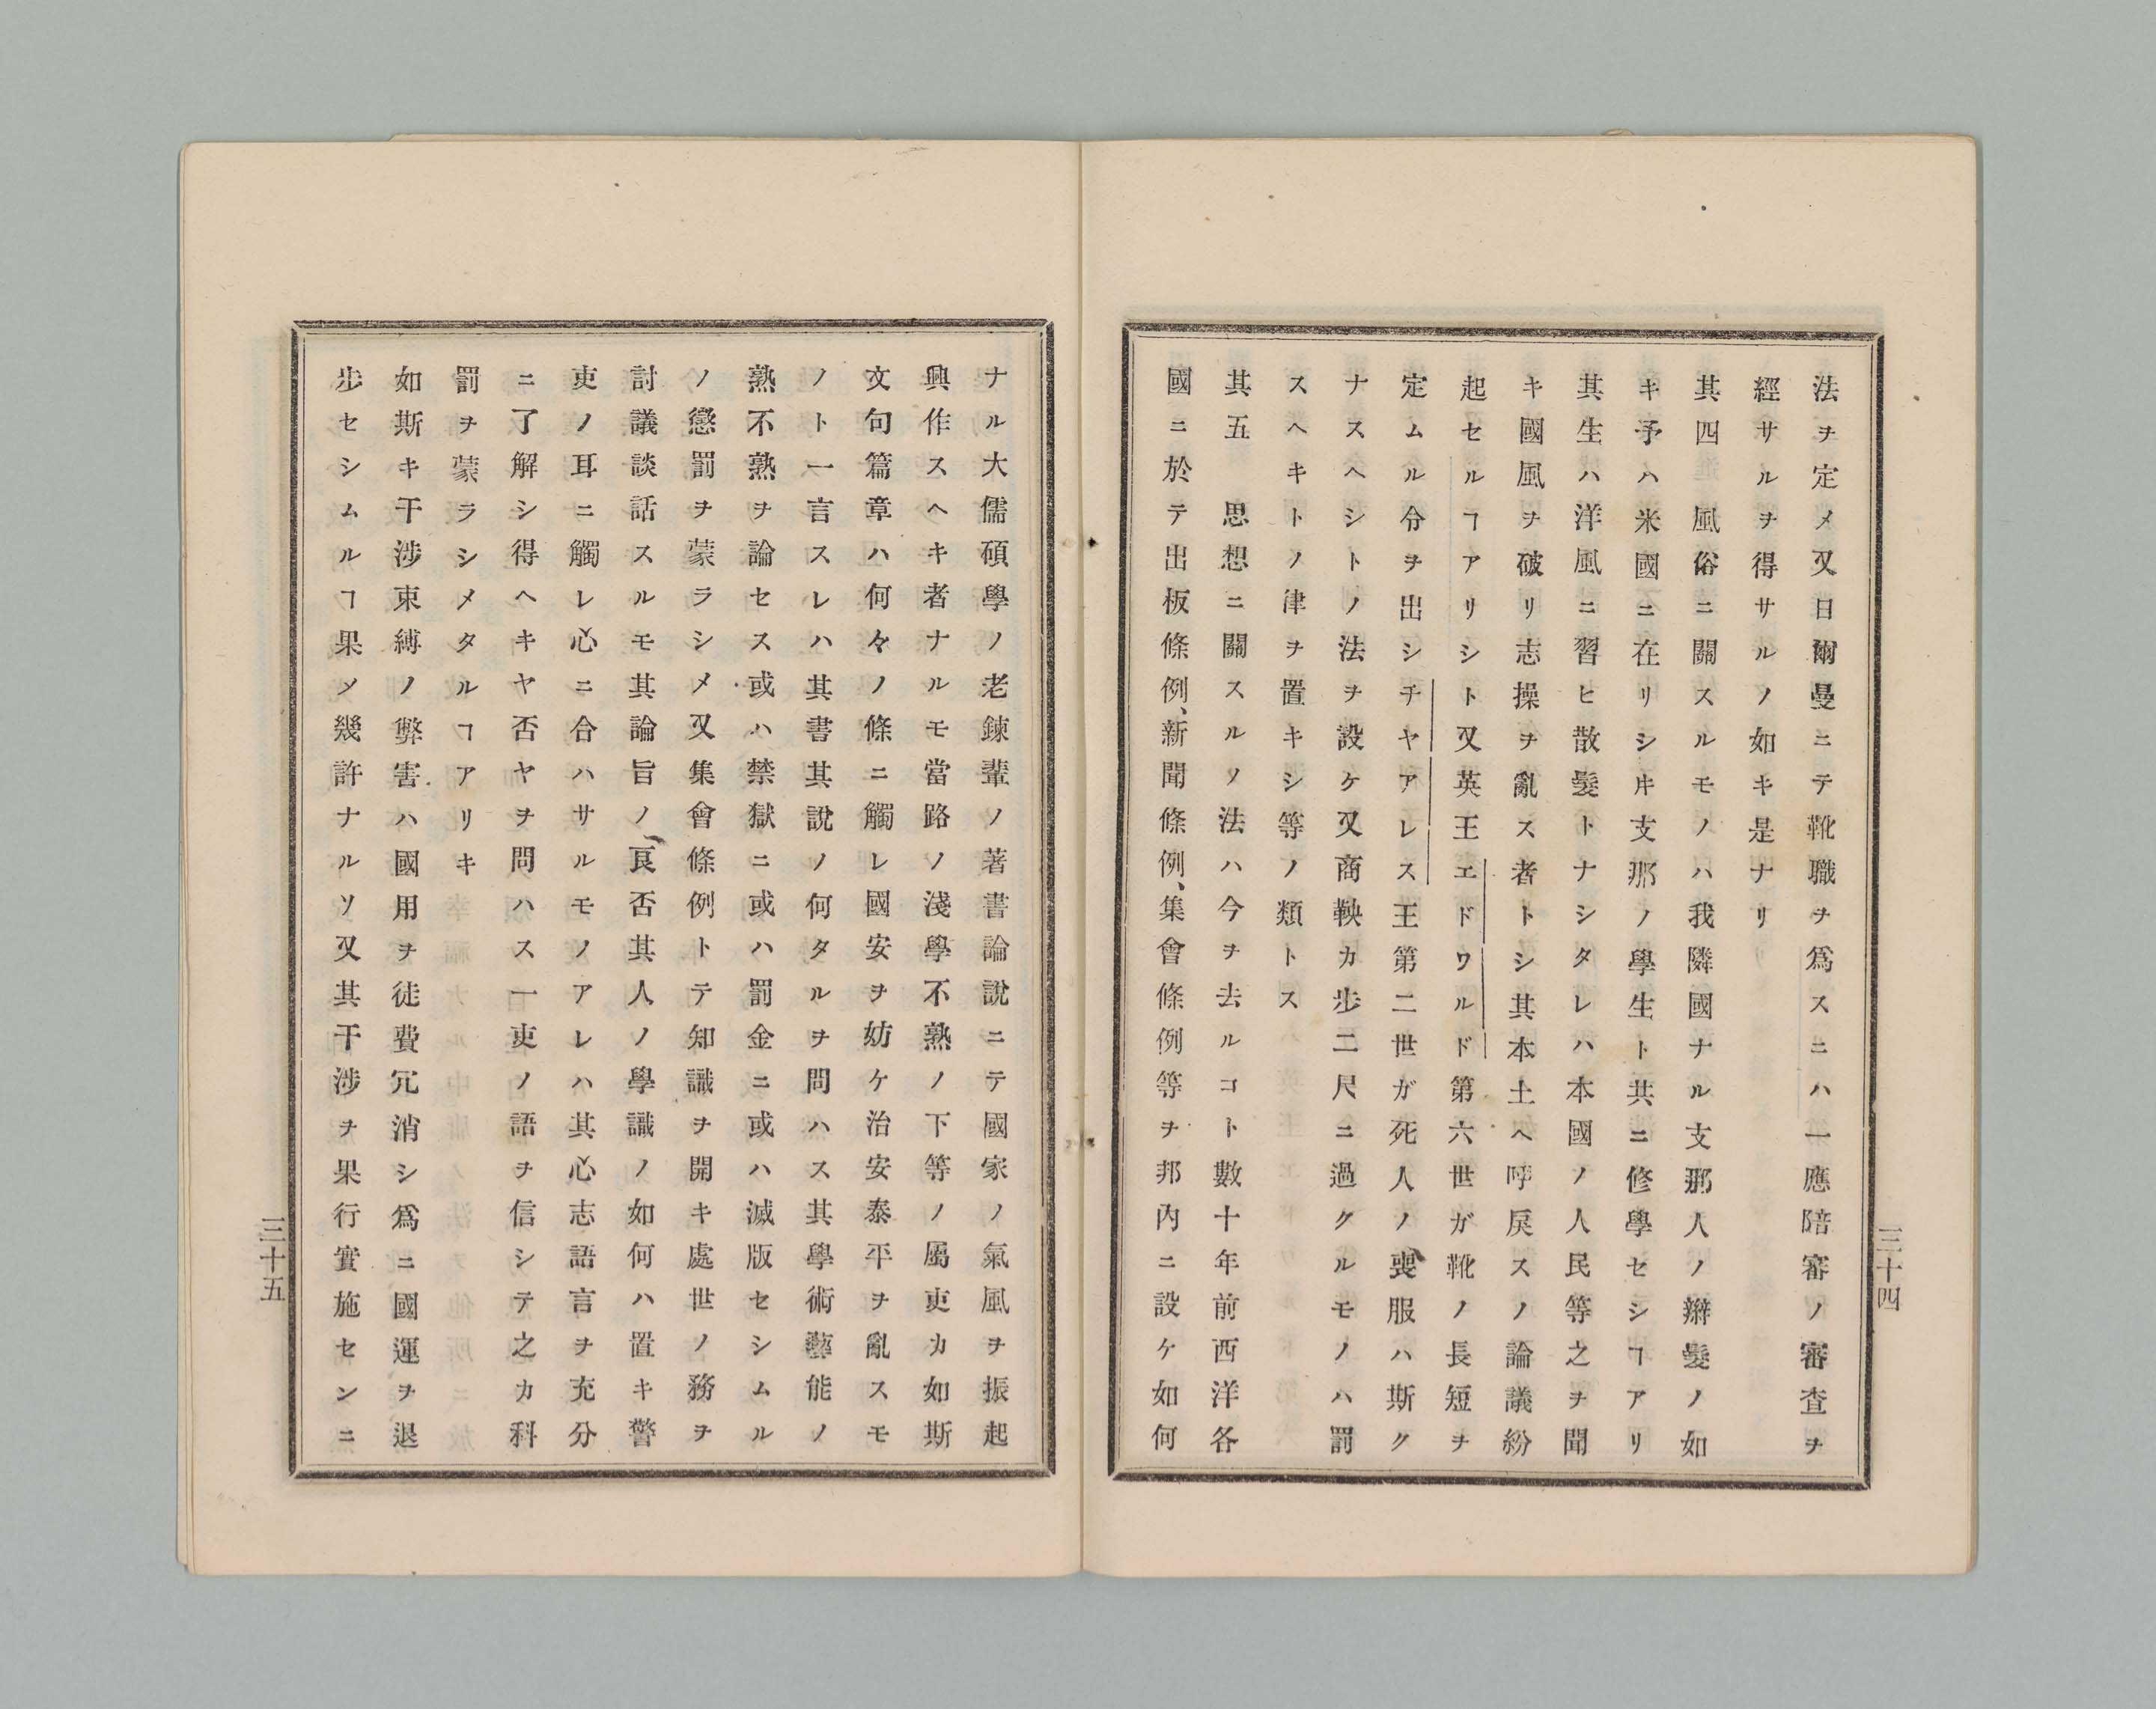 法ヲ定メ又日爾曼ニテ靴職ヲ爲スニハ一應陪審ノ審査ヲ
經サルヲ得サルノ如キ是ナリ
其四進風俗ニ關スルモノハ我隣國ナル支那人ノ辮髮ノ如
キ予ハ米國ニ在リシ𪜈支那ノ學生ト共ニ修學セシヿアリ
其生ハ洋風ニ習ヒ散髮トナシタレハ本國ノ人民等之ヲ聞
キ國風ヲ破リ志操ヲ亂ス者トシ其本土ヘ呼戾スノ論議紛
起セルヿアリシト又英王エドワルド第六世ガ靴ノ長短ヲ
定ムル分ヲ出シチヤアレス王第二世ガ死人ノ喪服ハ斯ク
ナスヘシトノ法ヲ設ケ又商鞅カ步二尺ニ過クルモノハ罰
スヘキトノ律ヲ置キシ等ノ類トス
其五 思想ニ關スルノ法ハ今ヲ去ルコト數十年前西洋各
國ニ於テ出板條例、新聞條例、集會條例等ヲ邦內ニ設ケ如何
三十四
ナル大儒碩學ノ老鍊輩ノ著書論說ニテ國家ノ氣風ヲ振起
興作スヘキ者ナルモ當路ノ淺學不熟ノ下等ノ屬吏カ如斯
文句篇章ハ何々ノ條ニ觸レ國安ヲ妨ケ治安泰平ヲ亂スモ
ノト一言スレハ其書其說ノ何タルヲ問ハス其學術藝能ノ
熟不熟ヲ論セス或ハ禁獄ニ或ハ罰金ニ或ハ滅版セシムル
ノ懲罰ヲ蒙ラシメ又集會條例トテ知識ヲ開キ處世ノ務ヲ
討議談話スルモ其論旨ノ良否其人ノ學識ノ如何ハ置キ警
吏ノ耳ニ觸レ心ニ合ハサルモノアレハ其心志語言ヲ充分
ニ了解シ得ヘキヤ否ヤヲ問ハス一吏ノ語ヲ信シテ之カ科
罰ヲ蒙ラシメタルヿアリキ
如斯キ干涉束縛ノ弊害ハ國用ヲ徒費冗消シ爲ニ國運ヲ退
步セシムルヿ果メ幾許ナルソ又其干涉ヲ果行實施センニ
三十五